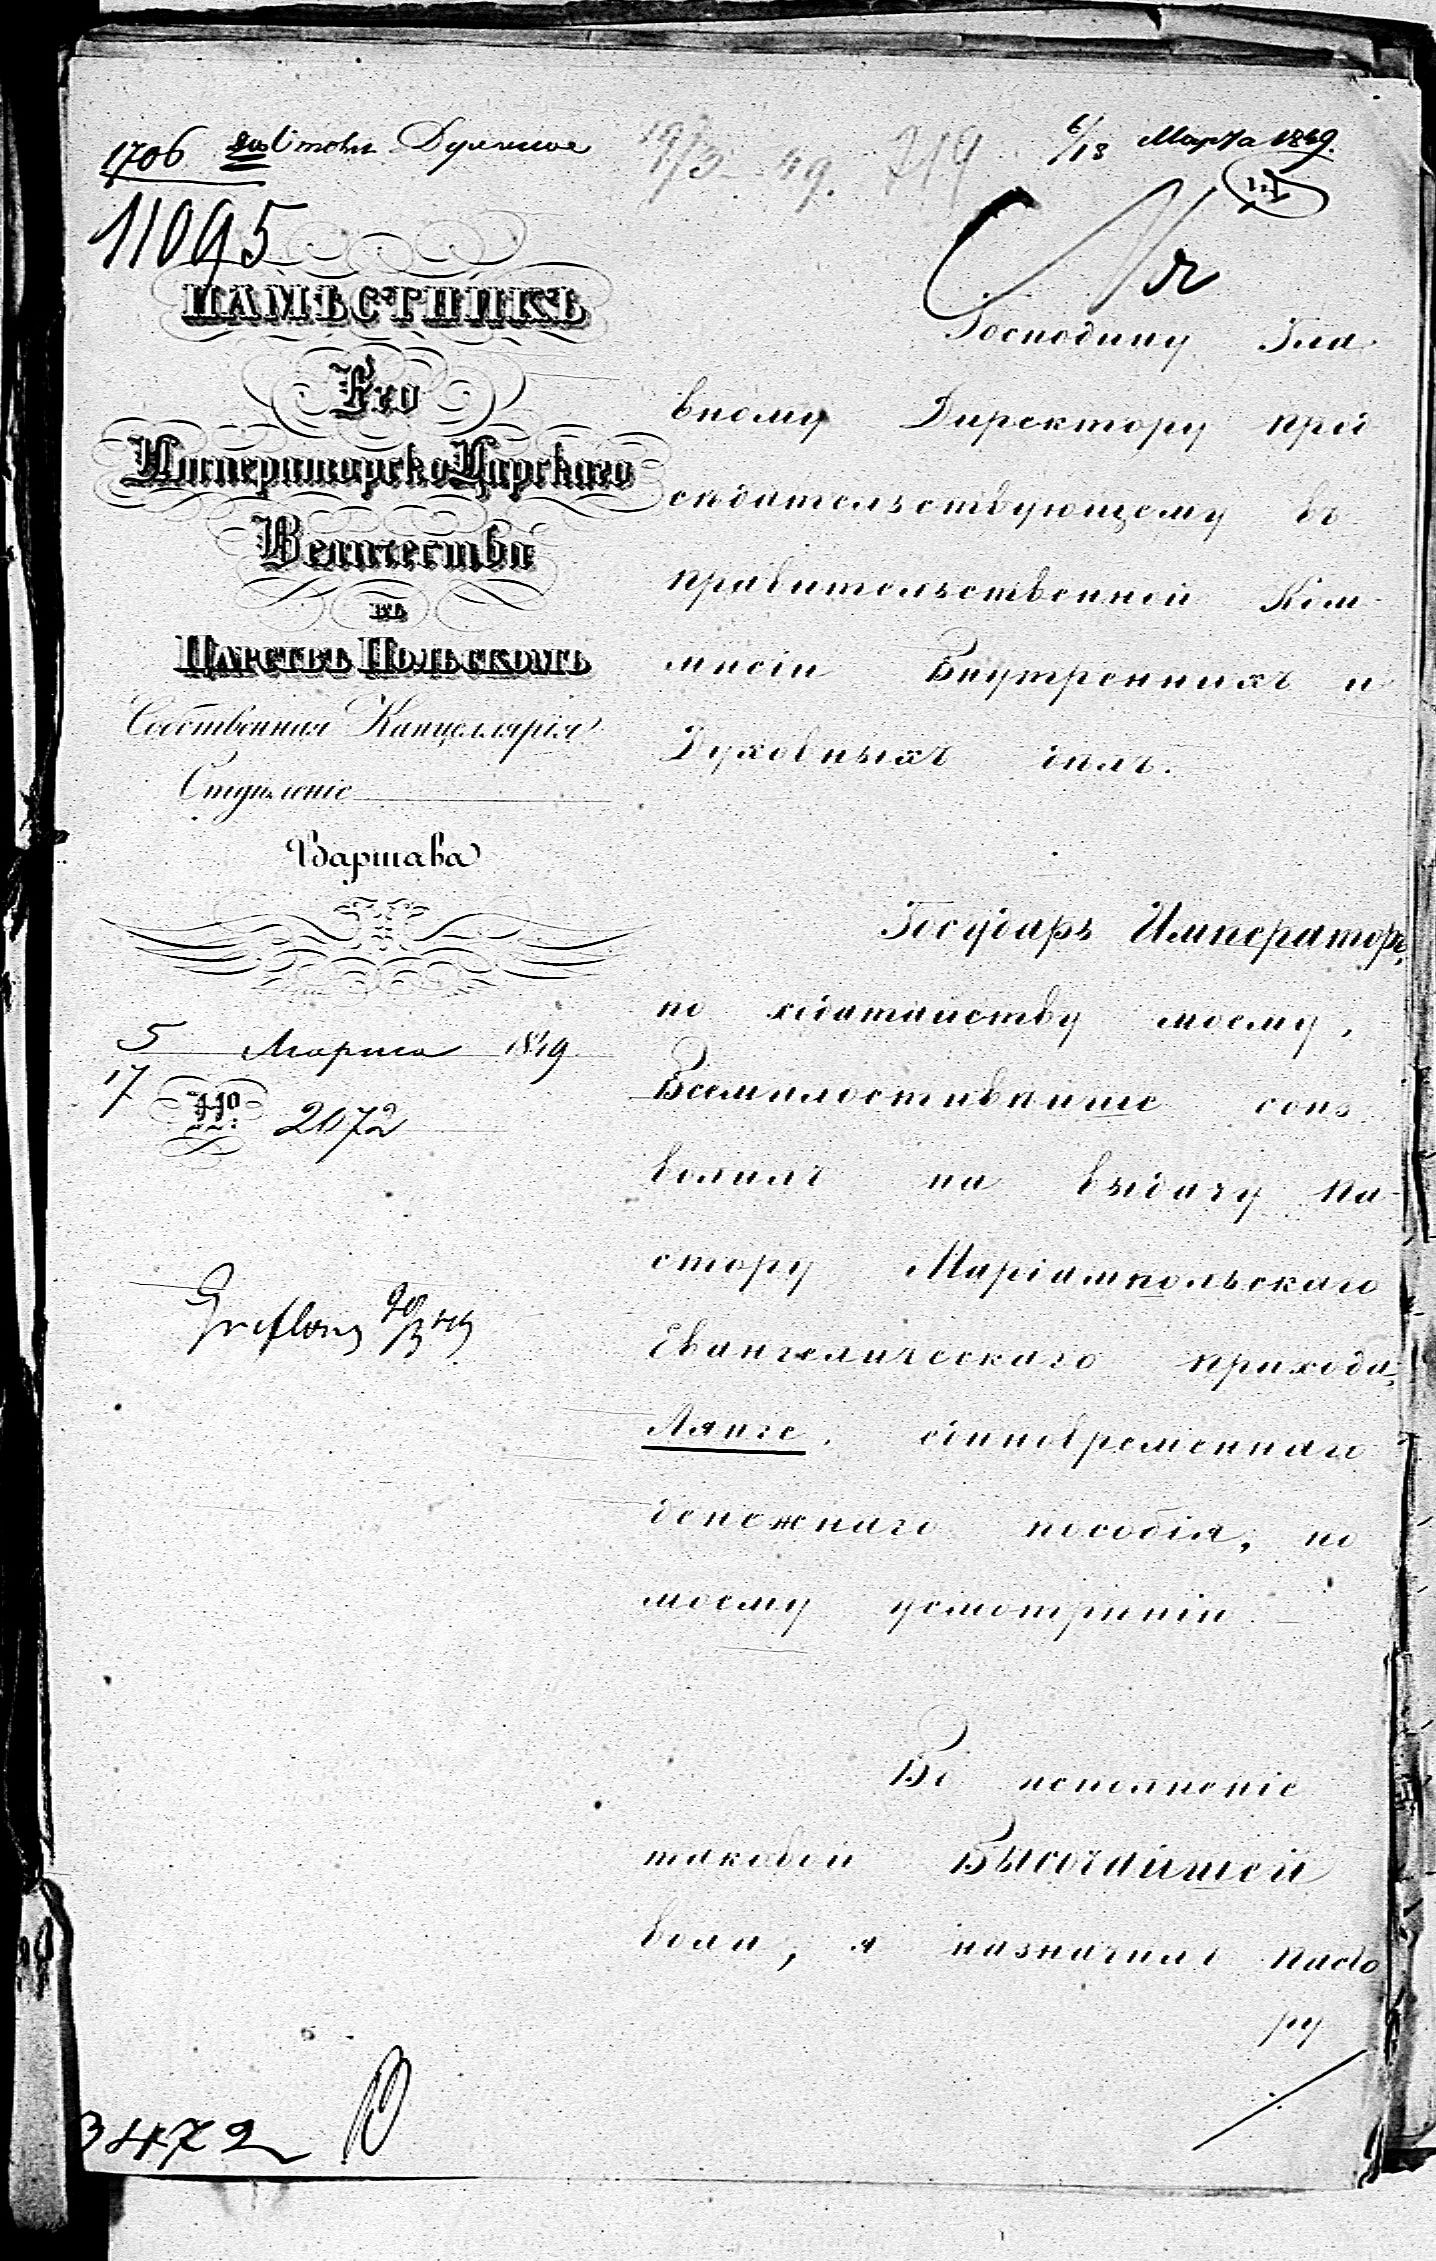 1706
Духовное
19/3 49. 719
6/18 Марта 1849.
11095
НАМѢСТНИКЪ
Его
Императорско Царскаго
Величества
въ
ЦАРСТВѢ ПОЛЬСКОМЪ
Собственная Канцеллярія
Отдѣленіе
Варшава
5 Марта 1849
17
No: 2072
20/3 49
Господину Гла
вному Директору пред
сѣдательствующему въ
правительственной Ком
мисіи Внутреннихъ и
Духовныхъ дѣлъ.
Государь Императоръ,
по ходатайству моему,
Всемилостивѣйше соиз
волилъ на выдачу па-
стору Маріампольскаго
Евангелическаго прихода,
Лянге, единовременнаго
денежнаго пособія, по
моему усмотрѣнію.
Во исполненіе
таковой Высочайшей
воли, я назначилъ Пасто
ру
3472